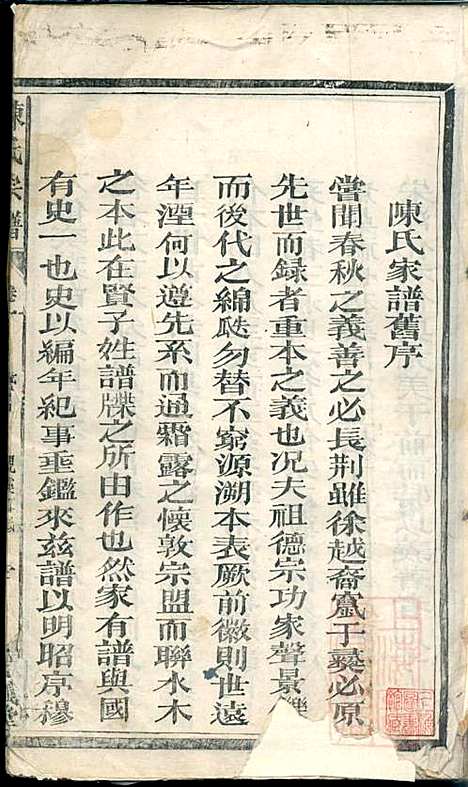 陳氏家譜舊序
嘗聞春秋之義善善之必長荆雖徐越裔竄于蠻必原
先世而録者重本之義也況夫祖德宗功家聲景
而後代之綿瓞勿替不窮源溯本表厥前徽則世遠
年湮何以遵先系而通霜露之懷敦宗盟而聯水木
之本此在賢子姓譜牒之所由作也然家有譜與國
有史一也史以編年紀事垂鑑來兹譜以明昭序穆
陳氏宗譜